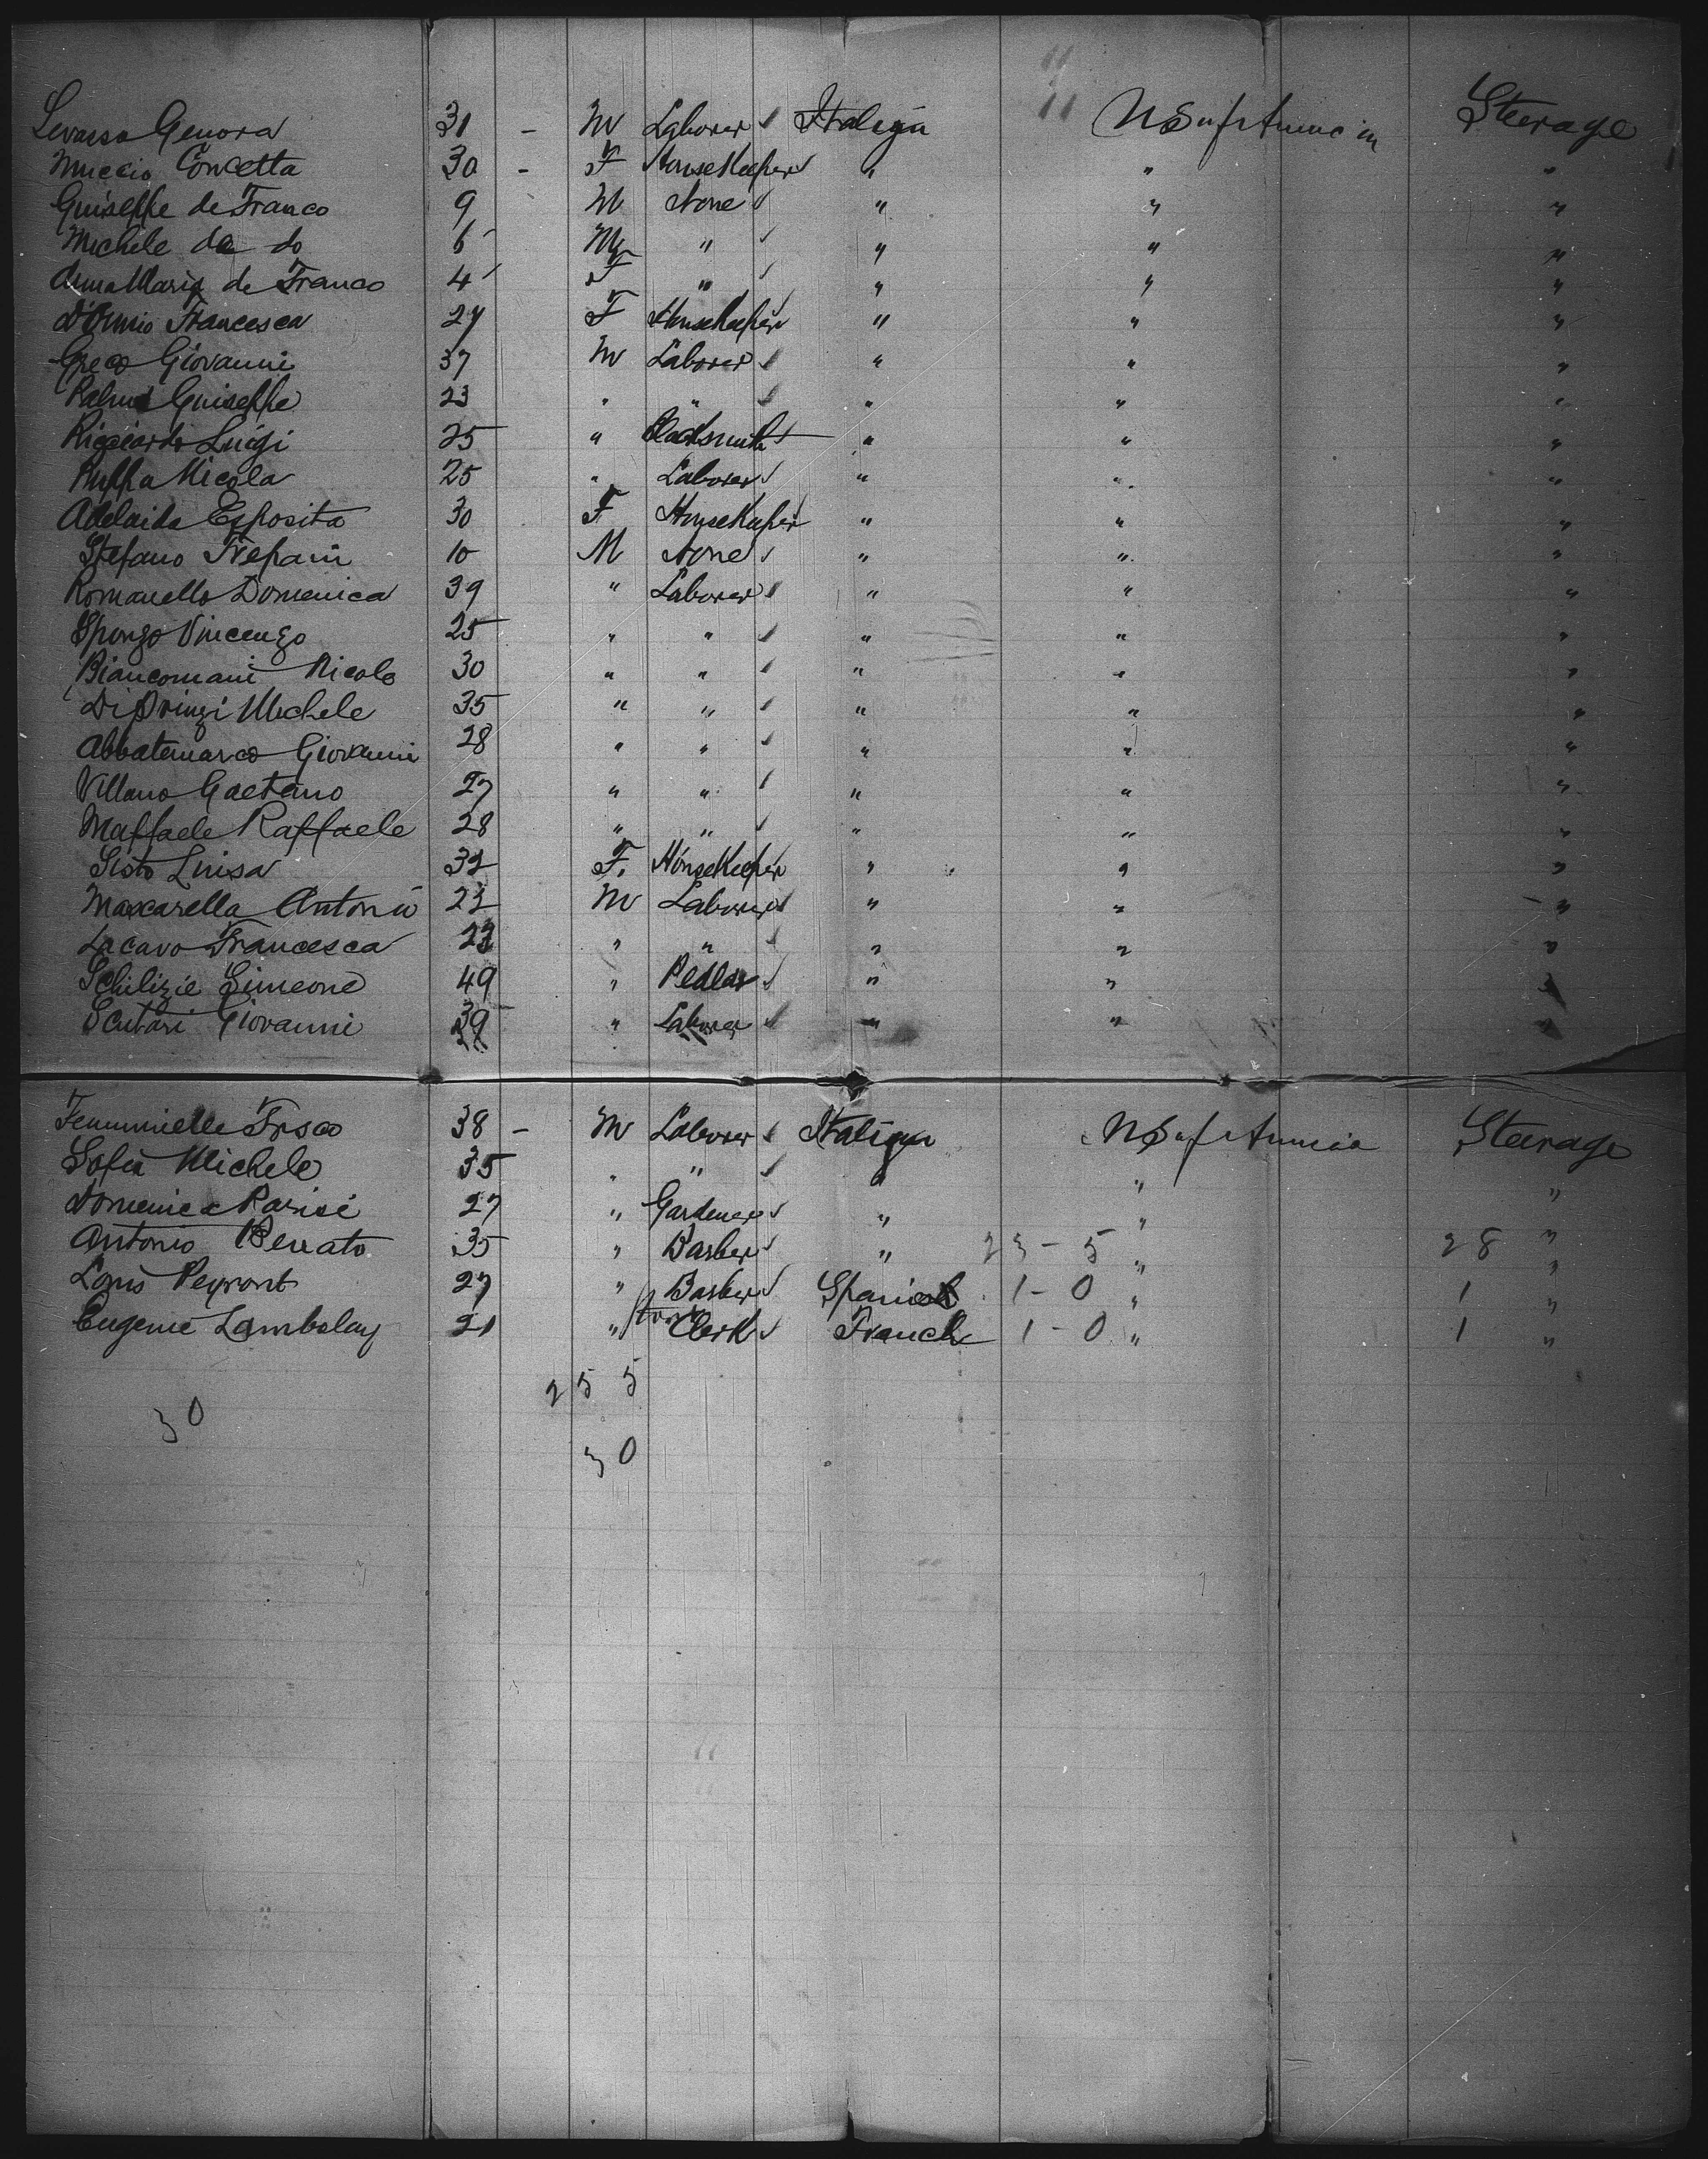 Levasso Genora 31 - M Laborer ✓ Italian U S of America Steerage
Muccio Concetta 30 - F HouseKeeper ✓ " " "
Guiseppe de Franco 9 M None ✓ " " "
Michele de do 6 M " ✓ " " "
Anna Maria de Franco 4 F " ✓ " " "
D'Onnio Francesca 27 F HouseKeeper " " "
Greco Giovanni 37 M Laborer ✓ " " "
Guiseppe 23 " " ✓ " " "
Ricciardo Luigi 25 " Blacksmith ✓ " " "
Ruffa Nicola 25 " Laborer ✓ " " "
Adelaide Esposita 30 F HouseKeeper " " "
Stefano Trepani 10 M None ✓ " " "
Romanello Domenica 39 " Laborer ✓ " " "
Spongo Vincenzo 25 " " ✓ " " "
Biancomani Nicola 30 " " ✓ " " "
Di Prinzi Michele 35 " " ✓ " " "
Abbatemarco Giovanni 28 " " ✓ " " "
Villano Gaetano 27 " " ✓ " " "
Maffaele Raffaele 28 " " ✓ " " "
Sisto Luisa 32 F. HouseKeeper " " "
Mascarella Antonio 23 M Laborer ✓ " " "
Lacavo Francesca 23 " " ✓ " " "
Schilizie Simeone 49 " Pedlar ✓ " " "
Scutari Giovanni 39 " Laborer ✓ " " "
Femminielle Frsco 38 - M Laborer ✓ Italian U S of America Steerage
Sofia Michele 35 " " ✓ " " "
Domenica Parisi 27 " Gardener ✓ " " "
Antonio Berrato 35 " Barber ✓ " 23 - 5 " 28 "
Louis Peyront 27 " Barber ✓ Spanish 1 - 0 " 1 "
Eugene Lambelay 21 " Clerk ✓ French 1 - 0 " 1 "
25 5
30
30